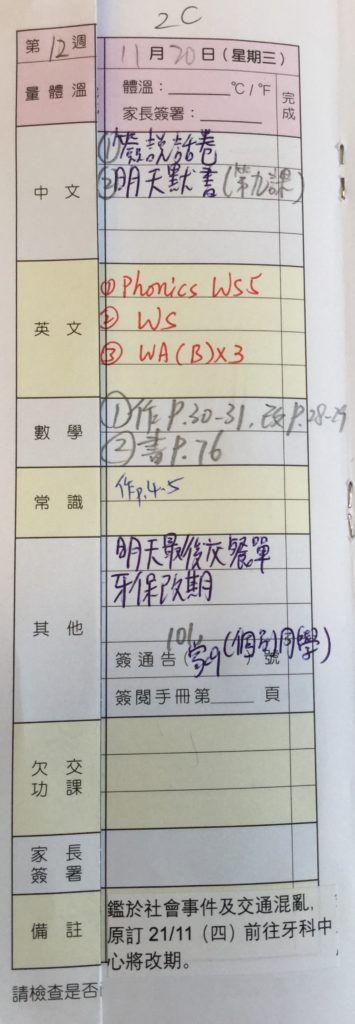 2C
第12週 11月20日（星期三）
量體溫 體溫：______°C / °F 完成
家長簽署：______
中文 ①簽說話卷
②明天默書(第九課)
英文 ① Phonics WS5
② WS
③ WA(B)x3
數學 ①作P.30-31, 改P.28-29
②書P.76
常識 作p.4-5
其他 明天最後交餐單
牙保改期
簽通告（101, 家9(個別同學) 號
簽閱手冊第____頁
欠交功課
家長簽署
備註 鑑於社會事件及交通混亂，
原訂 21/11（四）前往牙科中
心將改期。
請檢查是否